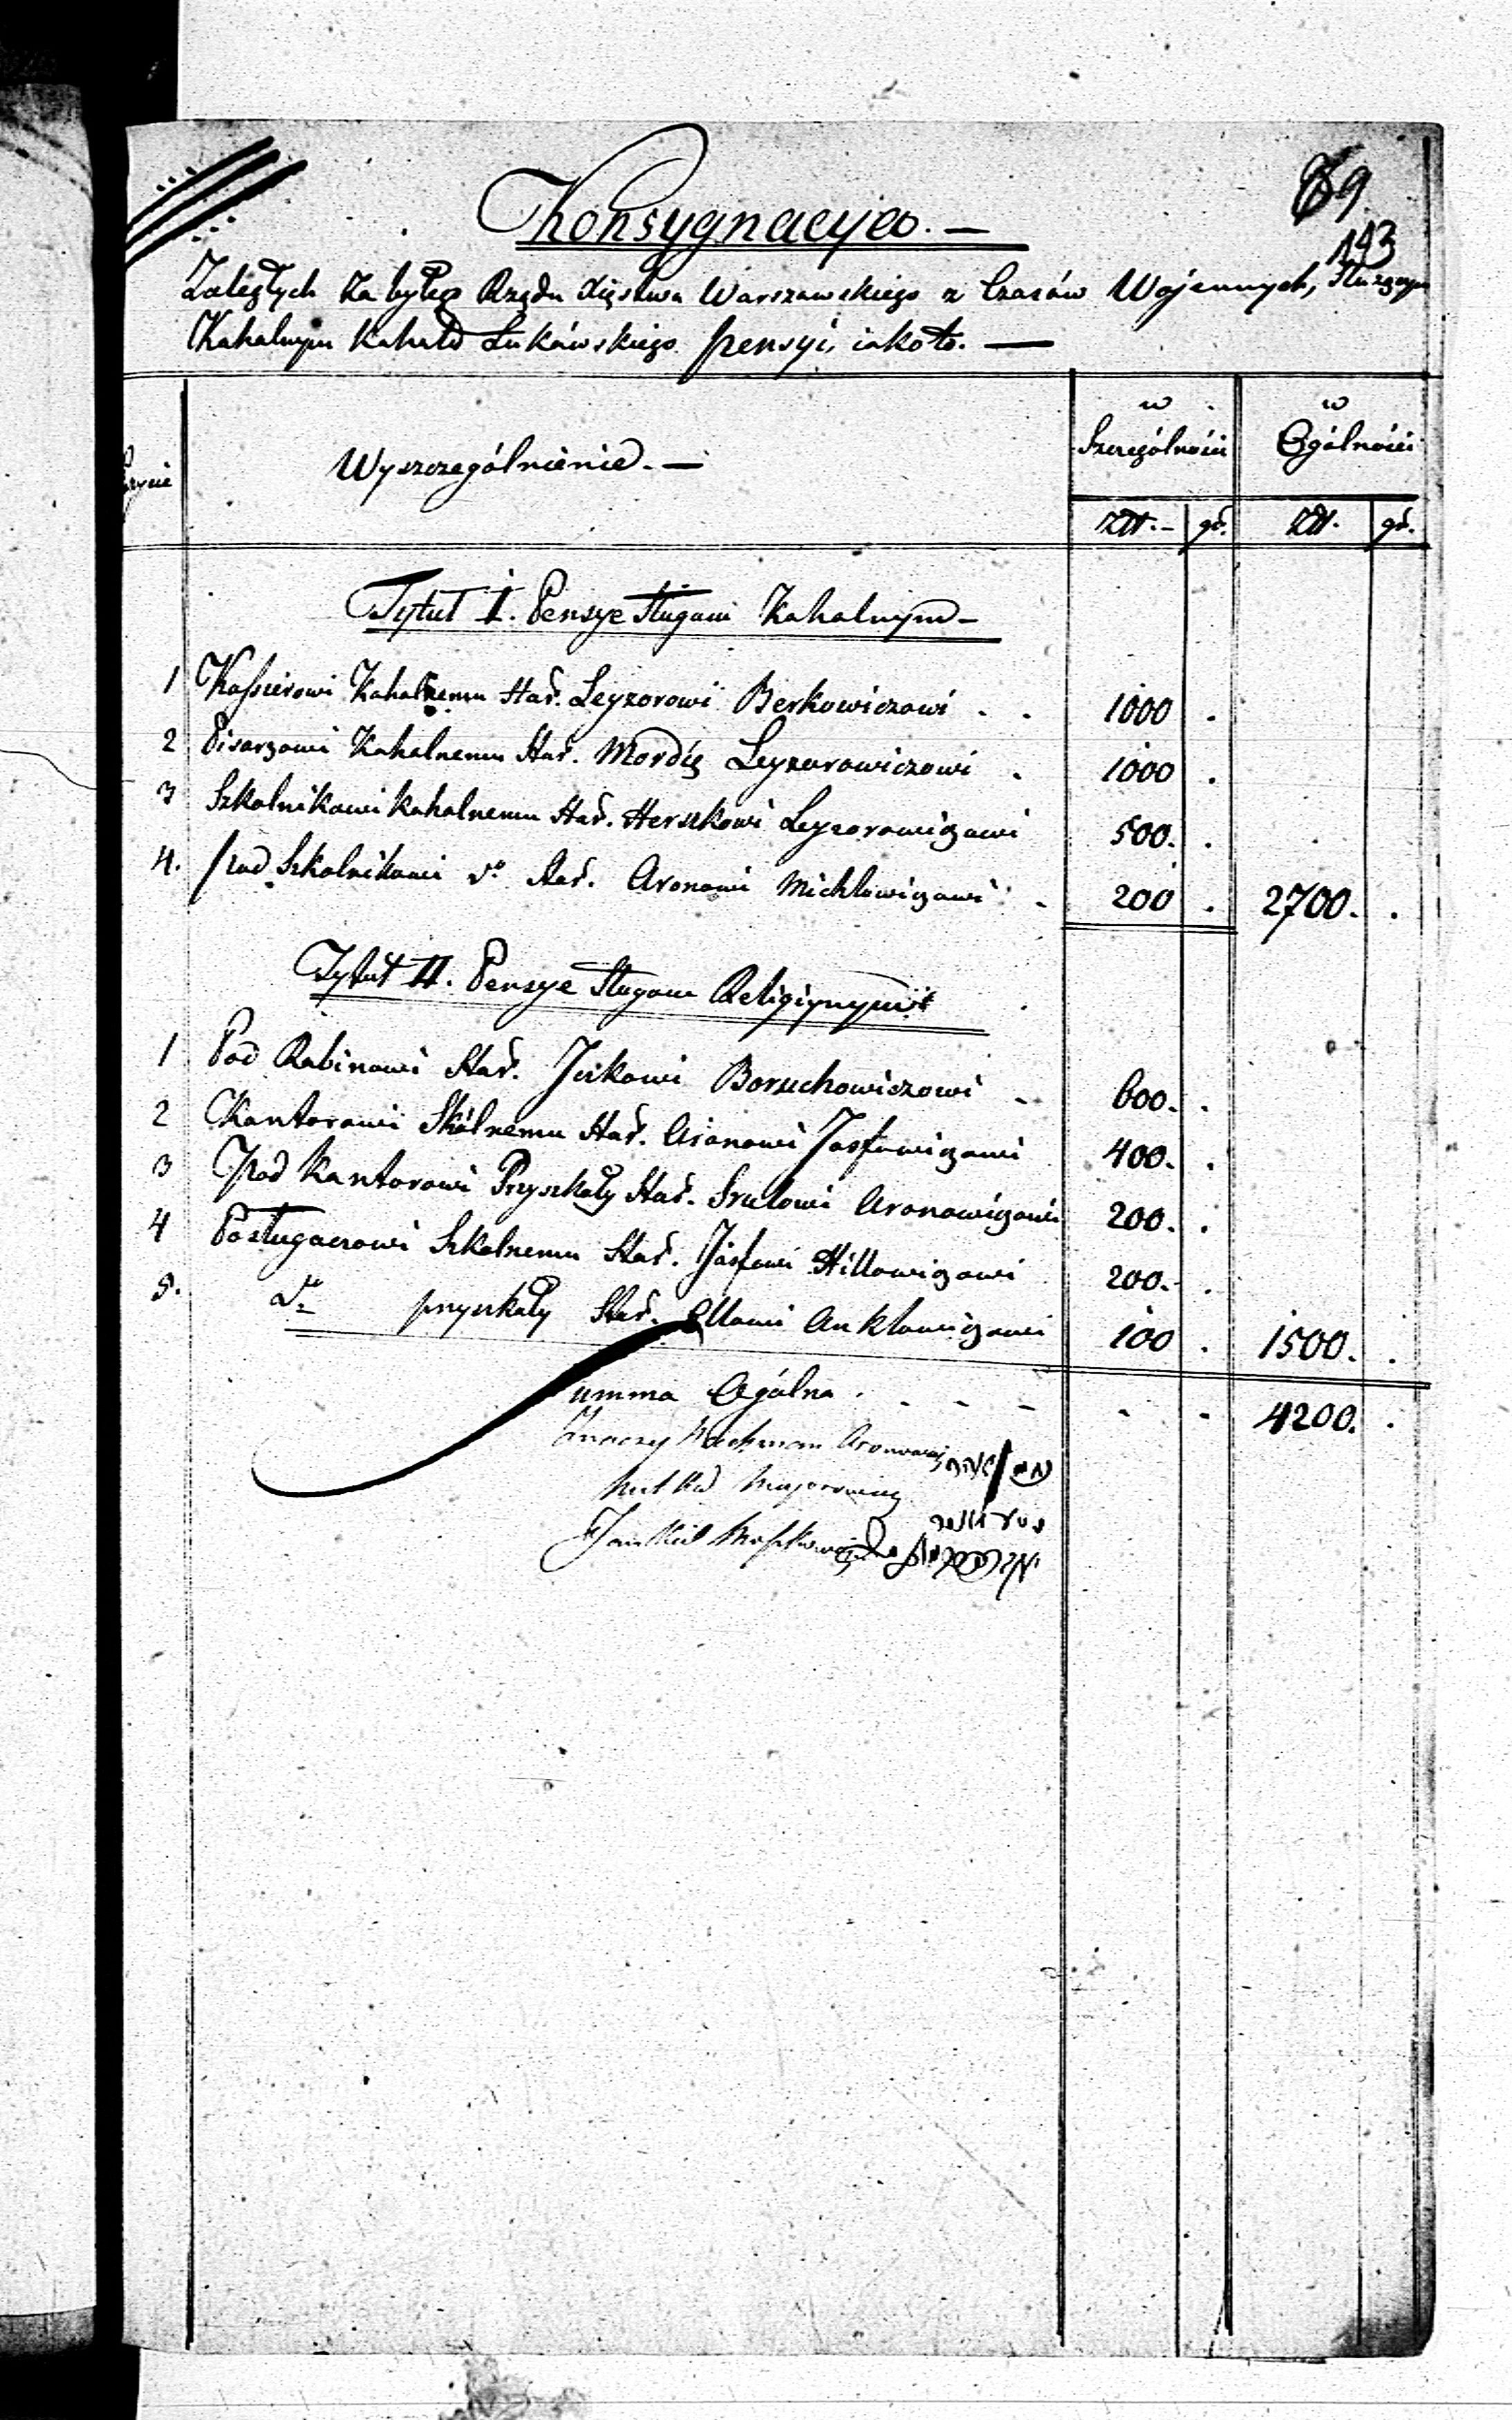 89
143
Konsygnacya. —
Zaległych za byłego Rządu Xięstwa Warszawskiego z Czasów Wojennych, Sługom
Kahalnym Kahału Łukowskiego pensyi, iako to. —
Wyszczególnienie. —
w Szczególności
w Ogólności
Złt. gr. Złt. gr.
Tytuł I. Pensye Sługom Kahalnym —
1 Kassierowi Kahalnemu Star. Leyzorowi Berkowiczowi . . 1000 .
2 Pisarzowi Kahalnemu Star. Leyzorowiczowi . 1000 .
3 Szkolnikowi Kahalnemu Star. Herszkowi Leyzorowiczowi 500. .
4. Pod Szkolnikowi do Star. Aronowi Michlowiczowi . 200 . 2700. .
Tytuł II. Pensye Sługom Religijnym
1 Pod Rabinowi Star. Ickowi Boruchowiczowi . 600. .
2 Kantorowi Star. Aronowi Josfowiczowi 400. .
3 Pod Kantorowi Przyszkoły Star. Srulowi Aronowiczowi 200. .
4 Posługaczowi Szkolnemu Star. Josfowi Hillowiczowi 200. .
5. do przyszkoły Star. Anklowiczowi 100 . 1500. .
Summa Ogólna . . - - - - 4200. .
Znaczy Nachman Aronowicz
Majorowicz
Jankiel Moszkowicz